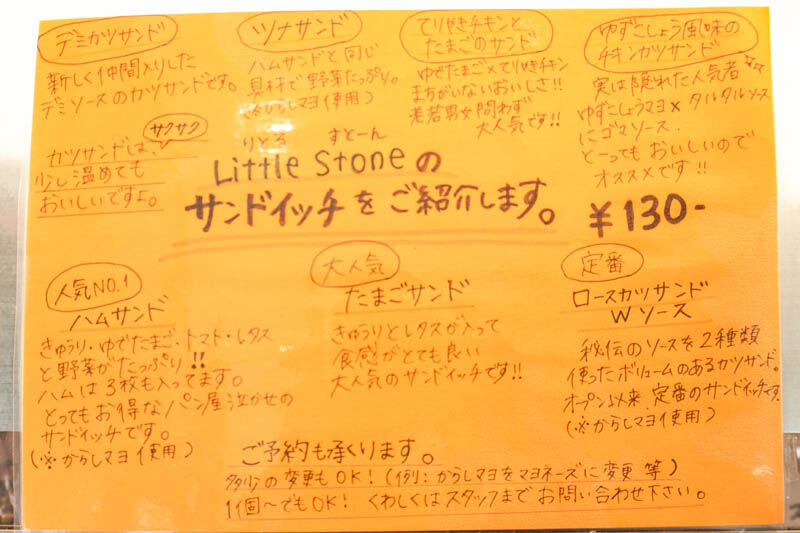 デミカツサンド
新しく仲間入りした
デミソースのカツサンドです。
サクサク
カツサンドは、
少し温めても
おいしいですよ。
ツナサンド
ハムサンドと同じ
具材で野菜たっぷり。
(※からしマヨ使用)
てりやきチキンと
たまごのサンド
ゆでたまご×てりやきチキン
まちがいないおいしさ!!
老若男女問わず
大人気です!!
ゆずこしょう風味の
チキンカツサンド
実は隠れた人気者
ゆずこしょうマヨ×タルタルソース
にゴマソース.
と〜ってもおいしいので
オススメです!!
¥130-
りとる すとーん
Little Stoneの
サンドイッチをご紹介します。
人気NO.1
ハムサンド
きゅうり・ゆでたまご・トマト・レタス
と野菜がたっぷり!!
ハムは3枚も入ってます。
とってもお得なパン屋泣かせの
サンドイッチです。
(※からしマヨ使用)
大人気
たまごサンド
きゅうりとレタスが入って
食感がとても良い
大人気のサンドイッチです!!
定番
ロースカツサンド
Wソース
秘伝のソースを2種類
使ったボリュームのあるカツサンド。
オープン以来、定番のサンドイッチです
(※からしマヨ使用)
ご予約も承くります。
多少の変更もOK!(例:からしマヨをマヨネーズに変更 等)
1個〜でもOK! くわしくはスタッフまでお問い合わせ下さい。